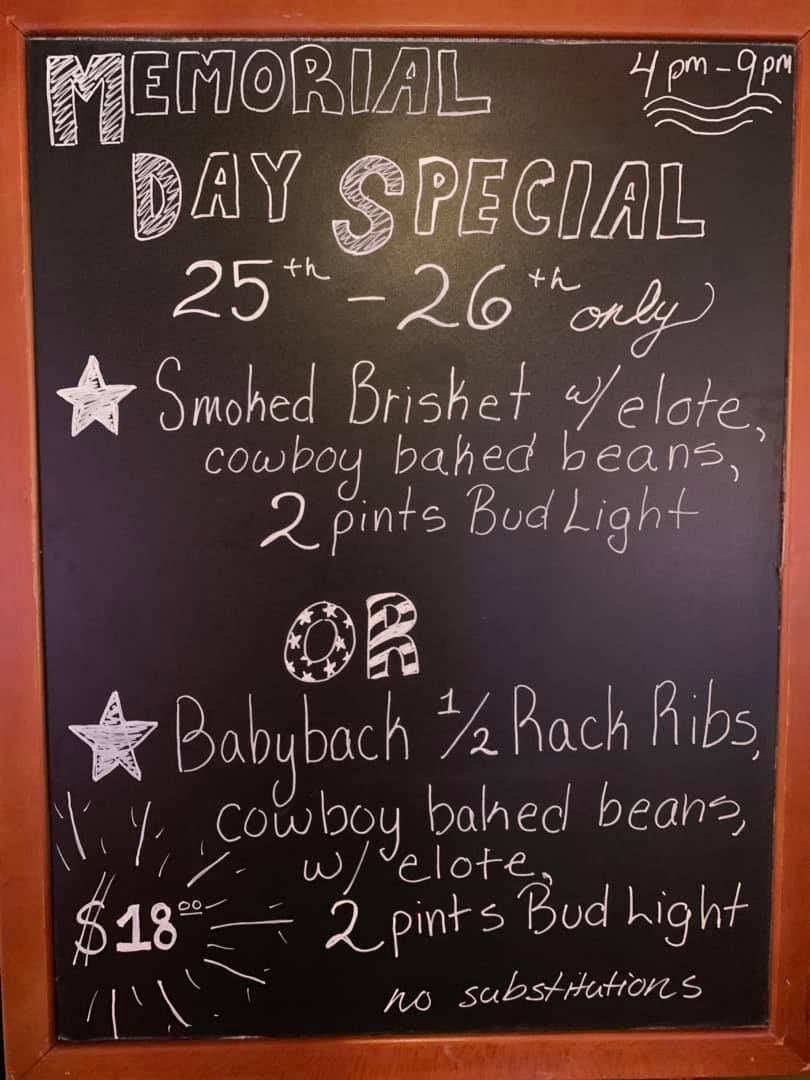 MEMORIAL
4pm-9pm
DAY SPECIAL
25th - 26th only
Smoked Brisket w/ elote,
cowboy baked beans,
2 pints Bud Light
OR
Babyback 1/2 Rack Ribs,
cowboy baked beans,
w/ elote,
$18.00 2 pints Bud Light
no substitutions